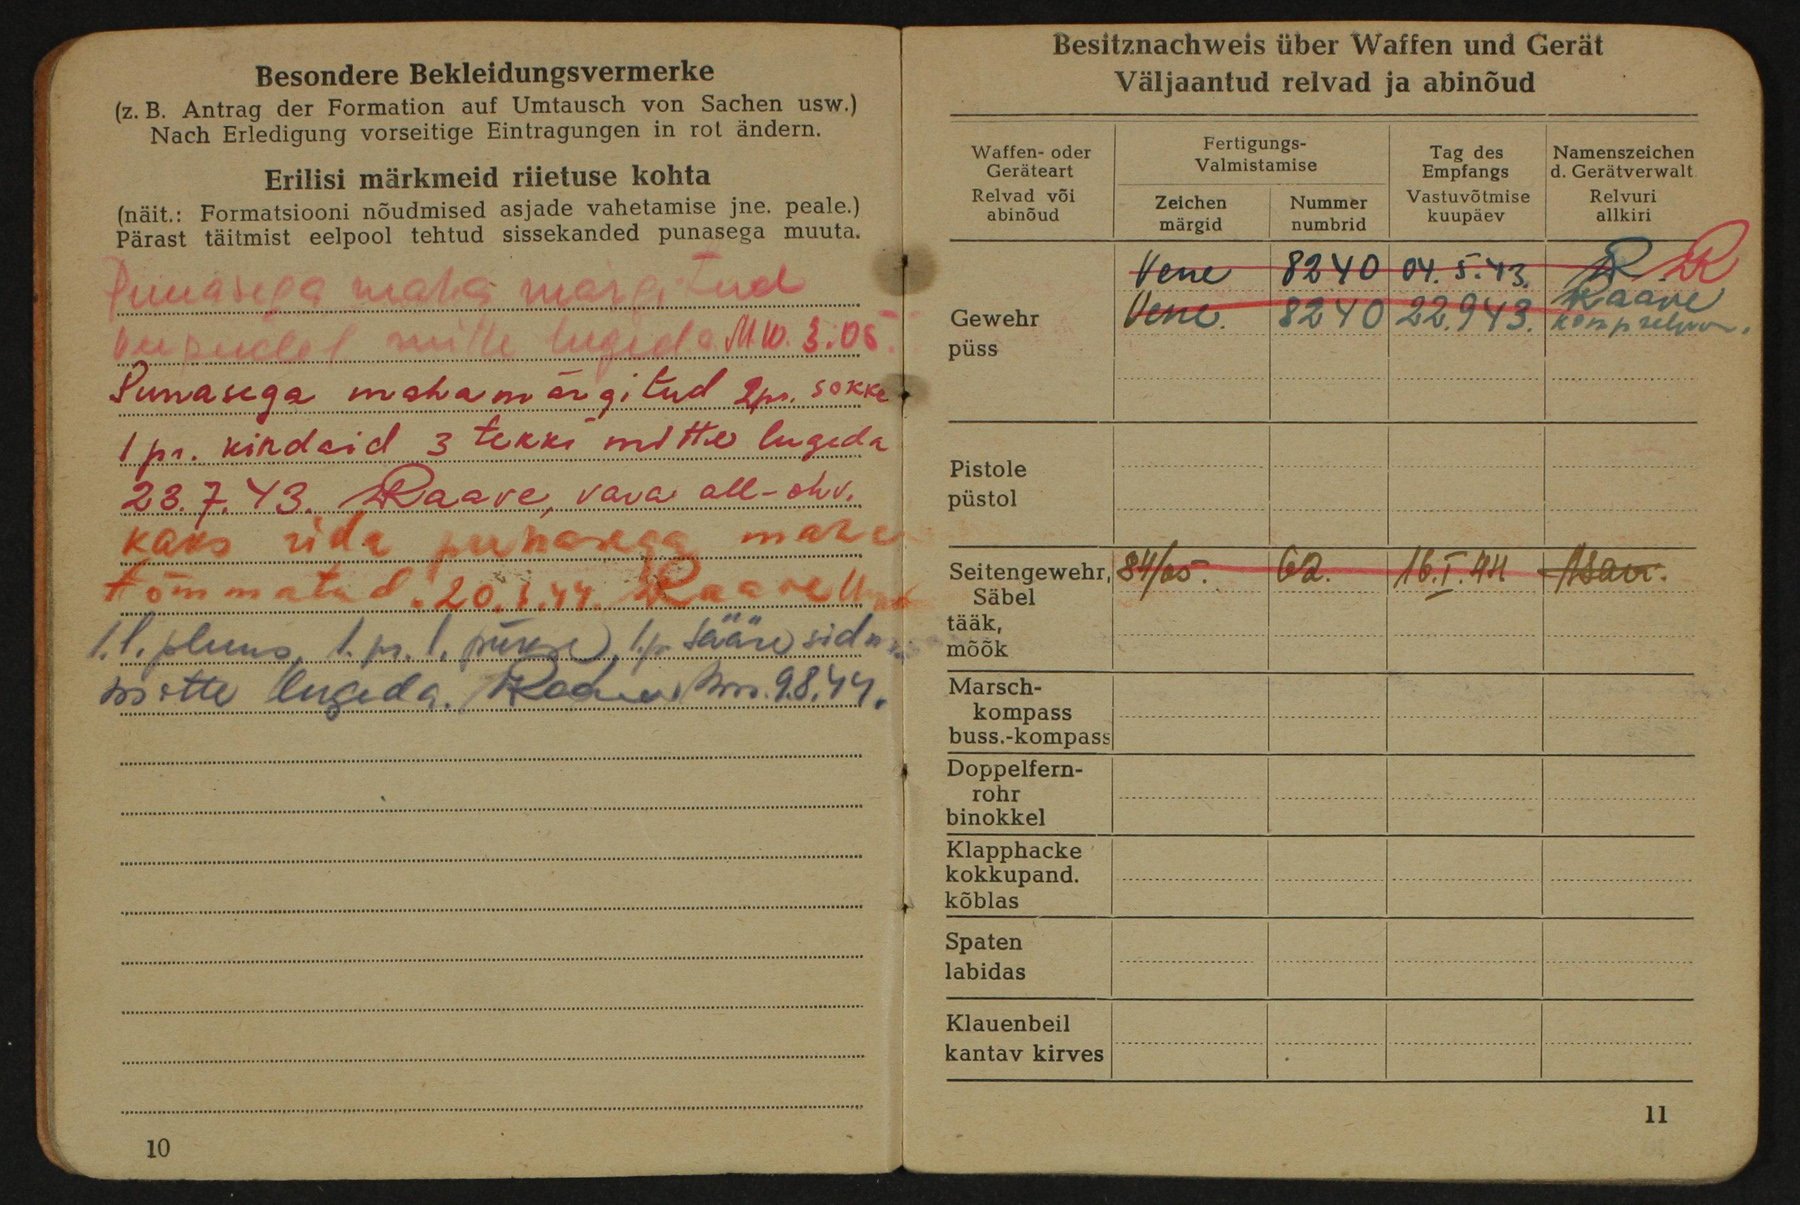 Besondere Bekleidungsvermerke
(z. B. Antrag der Formation auf Umtausch von Sachen usw.)
Nach Erledigung vorseitige Eintragungen in rot ändern.
Erilisi märkmeid riietuse kohta
(näit.: Formatsiooni nõudmised asjade vahetamise jne. peale.)
Pärast täitmist eelpool tehtud sissekanded punasega muuta.
Punasega maha märgitud
mitte lugeda
Punasega maha märgitud 2 pr. sokke
1 pr. kindaid 3 tekki mitte lugeda
23.7.43. Raave, vara all-ohv.
kaks rida punasega maha
tõmmatud. 20.1.44. Raave
1 l. pluus, 1. pr. l. pükse, 1 pr sääresid
mitte lugeda. 9.8.44.
10
Besitznachweis über Waffen und Gerät
Väljaantud relvad ja abinõud
Waffen- oder Geräteart
Relvad või abinõud
Fertigungs-
Valmistamise
Zeichen
märgid
Nummer
numbrid
Tag des Empfangs
Vastuvõtmise kuupäev
Namenszeichen d. Gerätverwalt
Relvuri allkiri
Gewehr
püss
Vene 8240 04.5.43. R R
Vene. 8240 22.943. Raave
Pistole
püstol
Seitengewehr,
Säbel
tääk,
mõõk
84/05. 62. 16.I.44
Marsch-
kompass
buss.-kompass
Doppelfern-
rohr
binokkel
Klapphacke
kokkupand.
kõblas
Spaten
labidas
Klauenbeil
kantav kirves
11